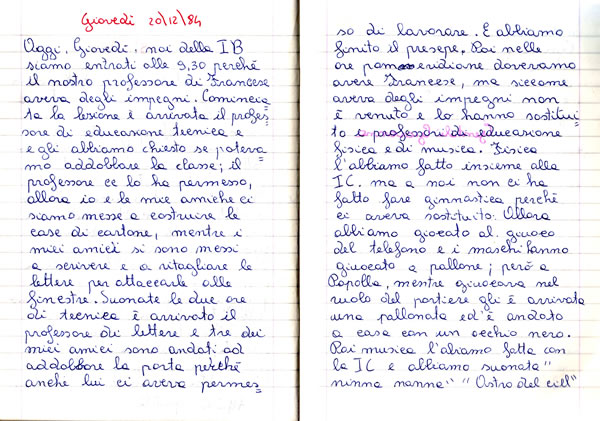 Giovedì 20/12/84
Oggi, Giovedì, noi della I B
siamo entrati alle 9,30 perché
il nostro professore di Francese
aveva degli impegni. Comincia=
ta la lezione è arrivato il profes=
sore di educazione tecnica e
e gli abbiamo chiesto se poteva=
mo addobbare la classe; il
professore ce lo ha permesso,
allora io e le mie amiche ci
siamo messe a costruire le
case di cartone, mentre i
miei amici si sono messi
a scrivere e a ritagliare le
lettere per attaccarle alle
finestre. Suonate le due ore
di tecnica è arrivato il
professore di lettere e tre dei
miei amici sono andati ad
addobbare la porta perché
anche lui ci aveva permes=
so di lavorare. E abbiamo
finito il presepe. Poi nelle
ore pomeridione dovevamo
avere Francese, ma siccome
aveva degli impegni non
è venuto e lo hanno sostitui=
to i professori di educazione
fisica e di musica. Fisica
l'abbiamo fatto insieme alla
I C. ma a noi non ci ha
fatto fare ginnastica perché
ci aveva sostituito. Allora
abbiamo giocato al giuoco
del telefono e i maschi hanno
giuocato a pallone; però a
Papolla, mentre giuocava nel
ruolo del portiere gli è arrivata
una pallonata ed'è andato
a casa con un occhio nero.
Poi musica l'abiamo fatta con
la I C e abbiamo suonato "
ninna nanna" "Astro del ciel"